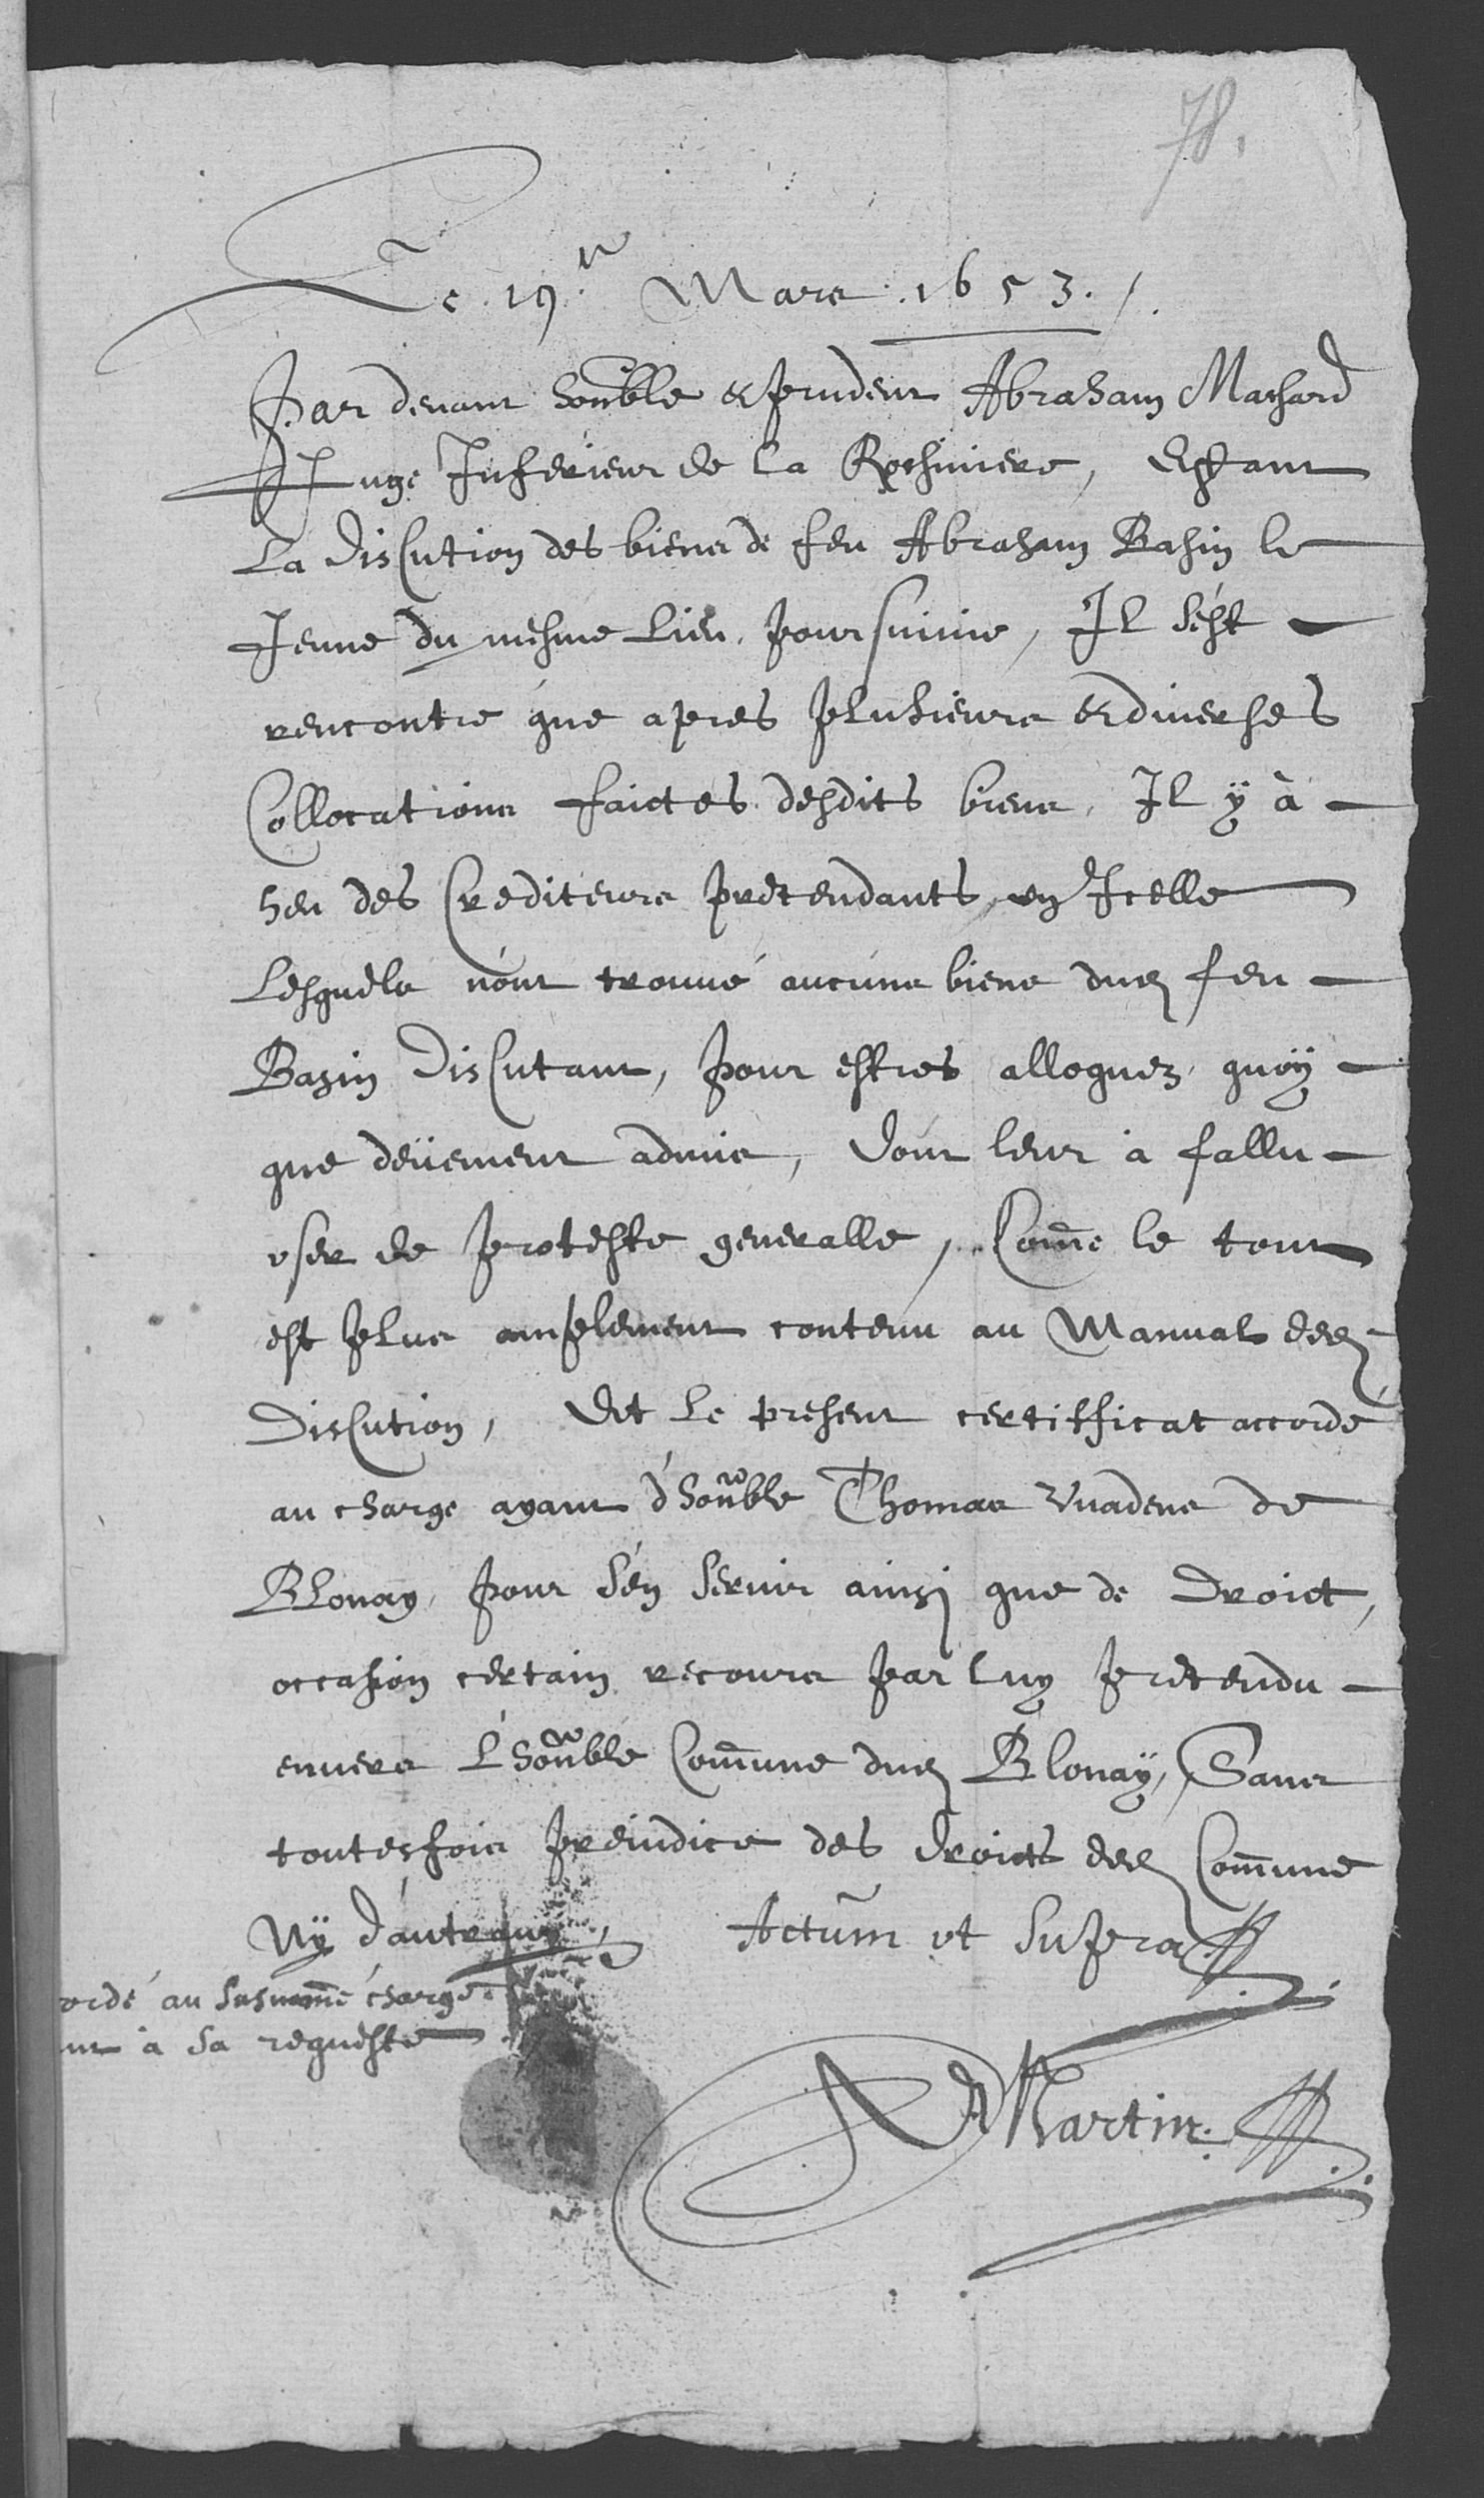 78.
Le 19.e Mars 1653./.
Par devant honble & prudent Abraham Machard
Juge Inferieur de la Rochiniere, Estant
La discution des biens de feu Abraham Basin le
Jeune du mesme lieu, poursuivie, Il s'est
rencontré que apres plusieurs & diverses
Collocations faictes desdits biens, Il ÿ à
heu des Crediteurs pretendants en Icelle
Lesquels n'ont trouvé aucuns biens dud feu
Basin discutant, pour estres alloquez, quoÿ
que deüement admis, dont leur à fallu
user de proteste generalle, Come le tout
est plus amplement contenu au Manual de
discution, Et le present certifficat accordé
au charge ayant d'honble Thomas Vuadens de
Blonay, pour s'en servir ainsi que de Droict,
occasion certain recours par luy pretendu
envers L'honble Comune dud Blonaÿ, Sans
toutesfois prejudice des droicts de Comune
Nÿ d'autruy, Actum ut Supra
ordé au susnomé charge
nt à sa requeste
AMartin